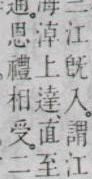 三江旣入。謂江
海淖上達。直至
通。恩禮相受。二